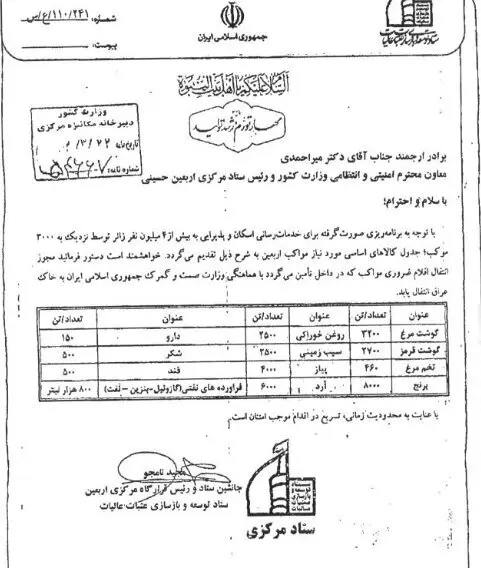 شماره: ۱۱۰/۲۴۱/ع/ص
پیوست:
جمهوری اسلامی ایران
ستاد توسعه و بازسازی عتبات عالیات
السلام علیکم یا اهل بیت النبوة
مهار تورم رشد تولید
وزارت کشور
دبیرخانه مکانیزه مرکزی
تاریخ نامه
شماره نامه:
برادر ارجمند جناب آقای دکتر میراحمدی
معاون محترم امنیتی و انتظامی وزارت کشور و رئیس ستاد مرکزی اربعین حسینی
با سلام و احترام؛
با توجه به برنامه‌ریزی صورت گرفته برای خدمات‌رسانی اسکان و پذیرایی به بیش از ۴ میلیون نفر زائر توسط نزدیک به ۳۰۰۰
موکب؛ جدول کالاهای اساسی مورد نیاز مواکب اربعین به شرح ذیل تقدیم می‌گردد. خواهشمند است دستور فرمائید مجوز
انتقال اقلام ضروری مواکب که در داخل تأمین می‌گردد با هماهنگی وزارت صمت و گمرک جمهوری اسلامی ایران به خاک
عراق انتقال یابد.
عنوان تعداد/تن عنوان تعداد/تن عنوان تعداد/تن
گوشت مرغ ۳۲۰۰ روغن خوراکی ۲۵۰۰ دارو ۱۵۰
گوشت قرمز ۲۷۰۰ سیب زمینی ۲۵۰۰ شکر ۵۰۰
تخم مرغ ۴۶۰ پیاز ۴۰۰۰ قند ۵۰۰
برنج ۸۰۰۰ آرد ۶۰۰۰ فراورده های نفتی (گازوئیل-بنزین-نفت) ۸۰۰ هزار لیتر
با عنایت به محدودیت زمانی، تسریع در اقدام موجب امتنان است.
مجید نامجو
جانشین ستاد و رئیس قرارگاه مرکزی اربعین
ستاد توسعه و بازسازی عتبات عالیات
ستاد
توسعه و
بازسازی
عتبات
عالیات
ستاد مرکزی